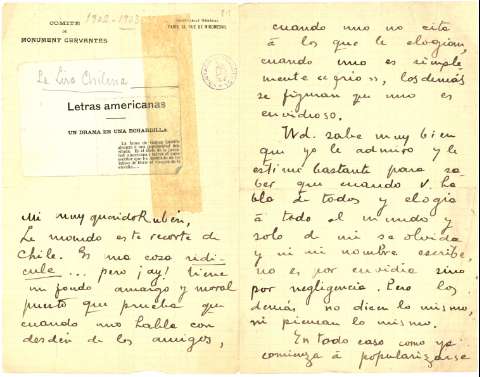 COMITÉ
DE
MONUMENT CERVANTES
1902-1903
La Lira Chilena
Letras americanas
UN DRAMA EN UNA BOHARDILLA
Mi muy querido Rubén,
Le mando este recorte de
Chile. Es una cosa ridi-
cula... pero ¡ay! tiene
un fondo amargo y moral
puesto que prueba que
cuando uno habla con
desdén de los amigos,
cuando uno no cita
á los que le elogian,
cuando uno es simple-
mente «egrio», los demás
se figuran que uno es
envidioso.
Vd. sabe muy bien
que yo le admiro y le
estimo bastante para sa-
ber que cuando V. ha-
bla de todos y elogia
á todo el mundo y
solo de mi se olvida
y ni mi nombre escribe,
no es por envidia sino
por negligencia. Pero los
demás no dicen lo mismo,
ni piensan lo mismo.
En todo caso como ya
comienza á popularizarse